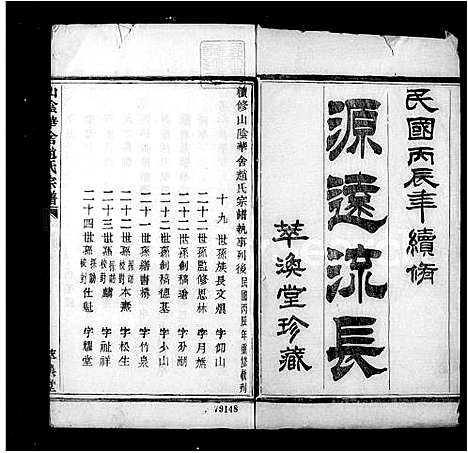 民國丙辰年續脩
源遠流長
萃渙堂珍藏
續修山陰華舍趙氏宗譜執事列後民國丙辰年重修敘列
十九世孫族長文煥 字仰山
二十二世孫監修思林 字月樵
二十二世孫創稿瑲 字芬湖
二十一世孫創稿德基 字少山
二十二世孫繕書橋 字竹泉
二十三世孫採訪校對本燕 字松生
二十三世孫麟 字祉祥
二十四世孫採訪校對仕魁 字耀堂
山陰華舍趙氏宗譜
萃渙堂
79148